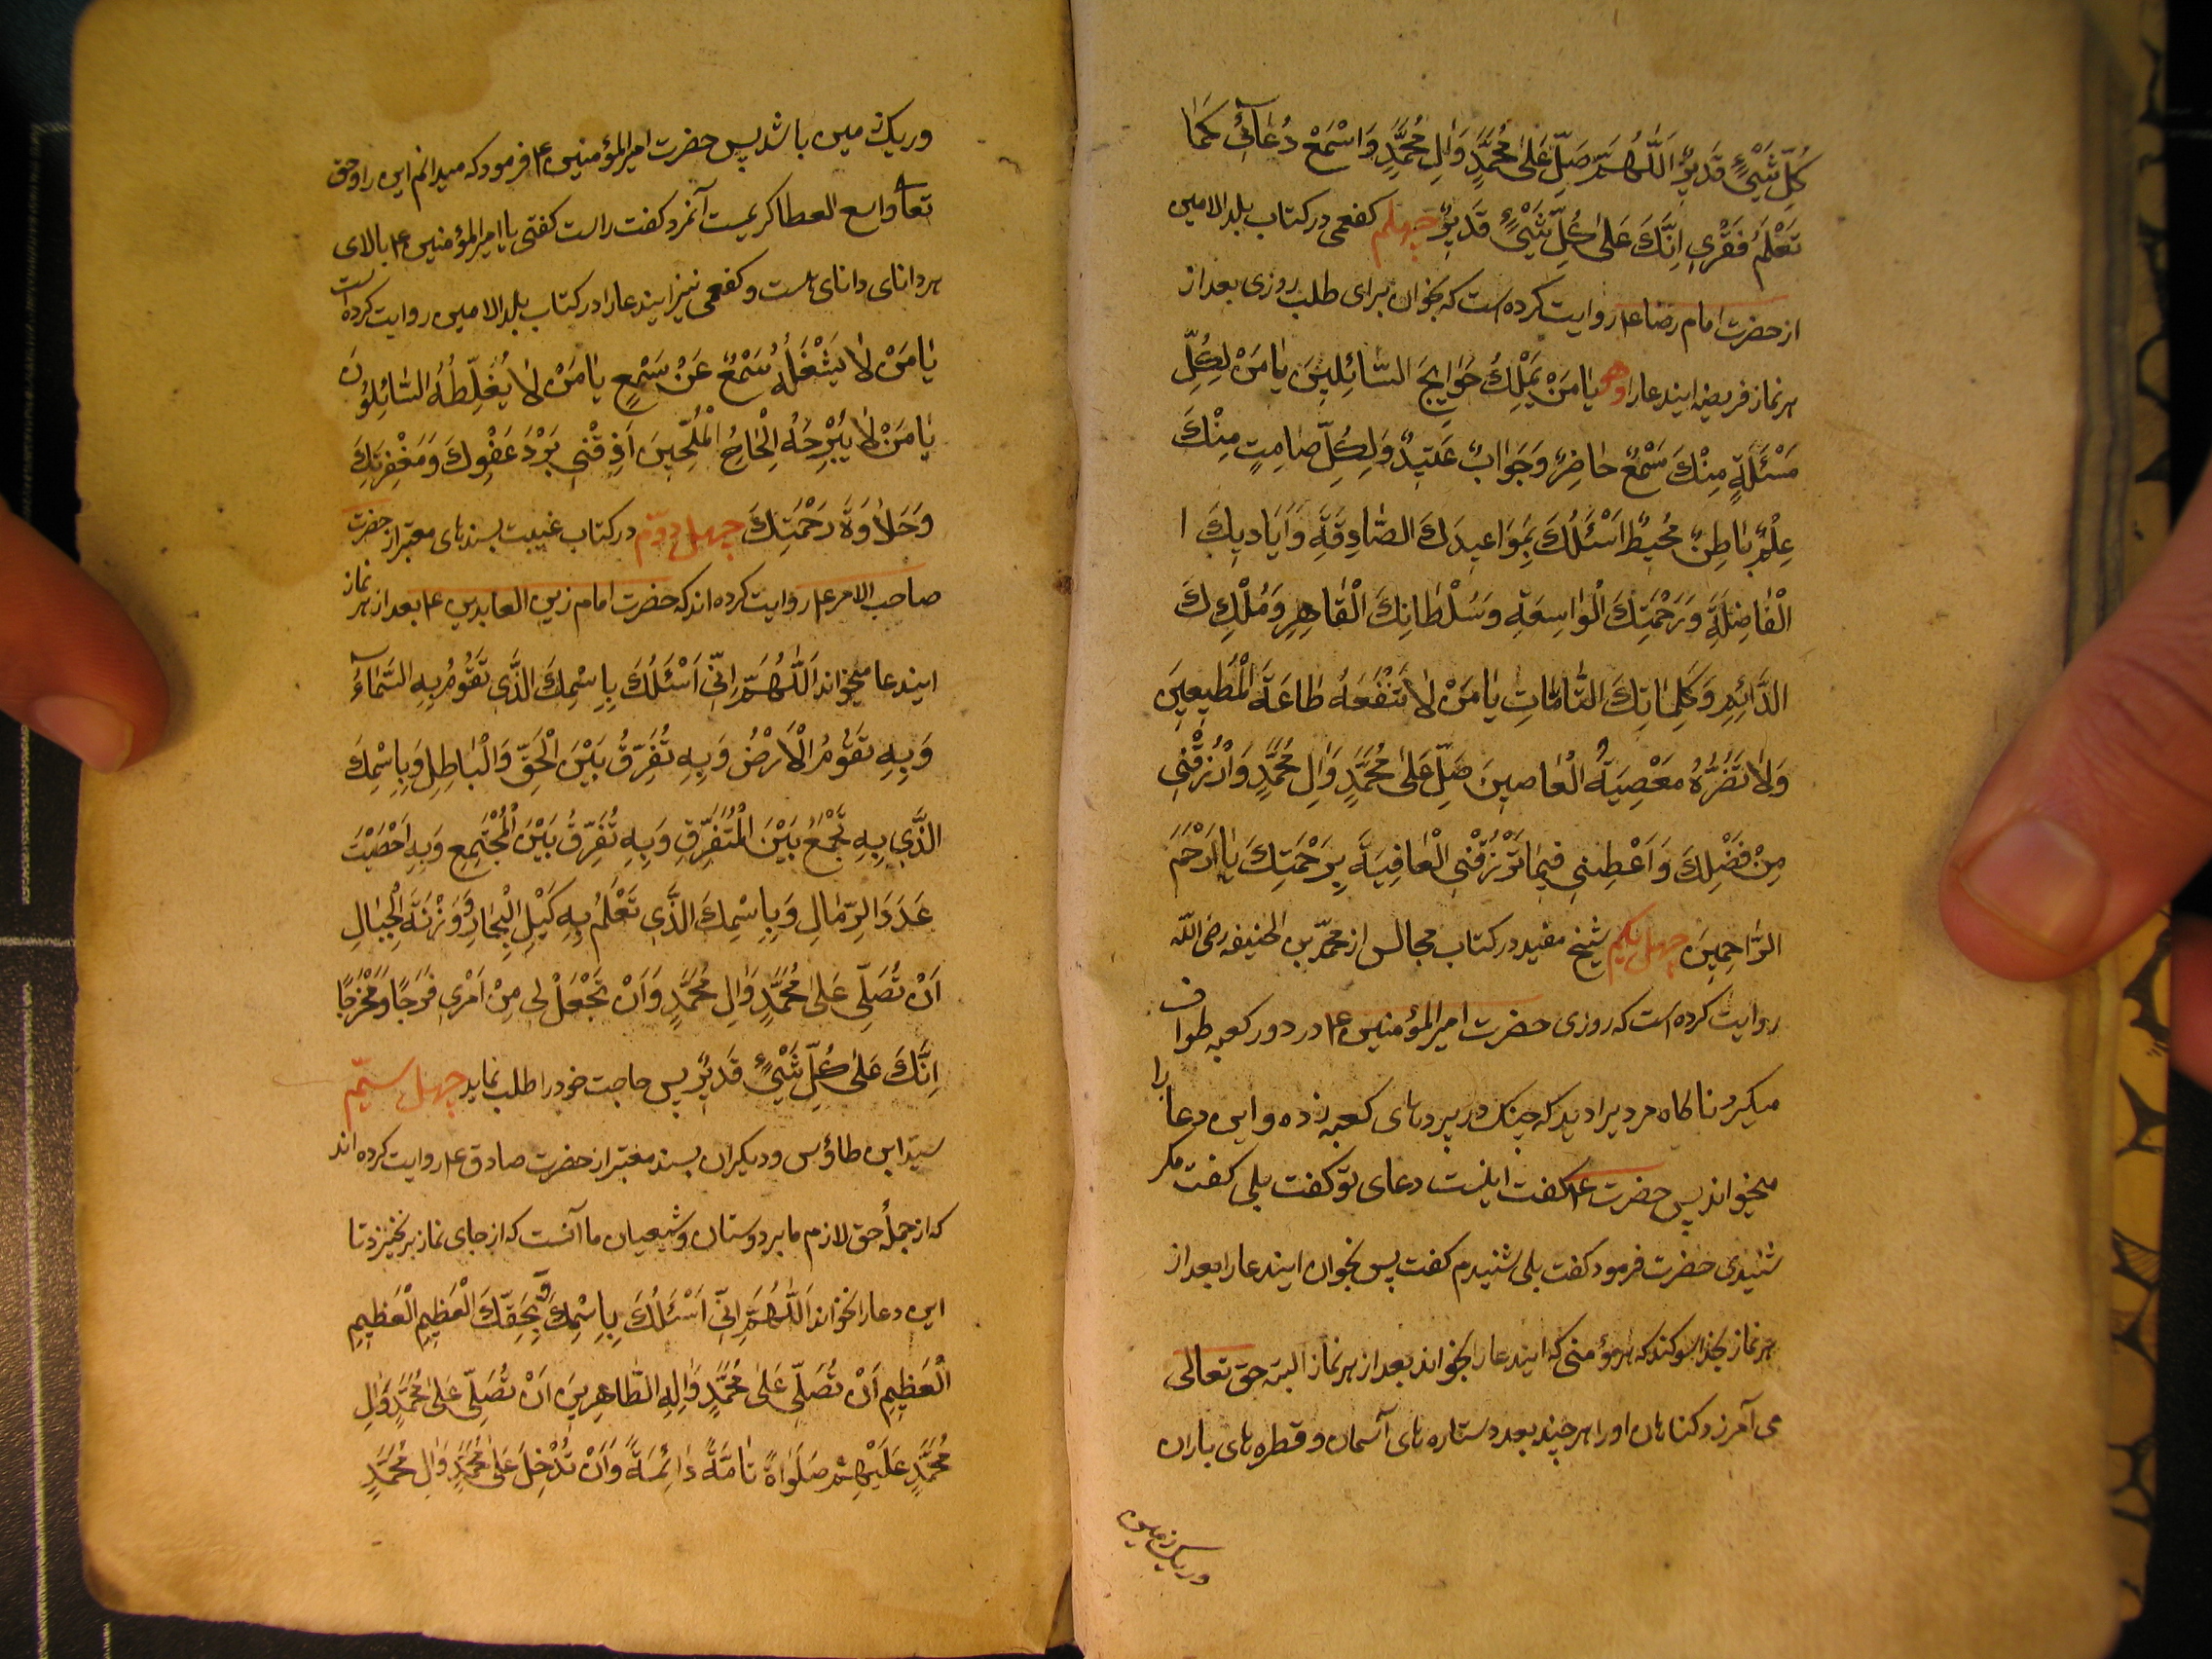 كُلِّ شَيْءٍ قَديرٌ اَللّٰهُمَّ صَلِّ عَلىٰ مُحَمَّدٍ وَاٰلِ مُحَمَّدٍ وَاسْمَعْ دُعٰائي كَمٰا
تَعْلَمُ فَقْري اِنَّكَ عَلىٰ كُلِّ شَيْءٍ قَديرٌ چهلم کفعمی در کتاب بلد الامین
از حضرت امام رضا ع روایت کرده است که بخوان برای طلب روزی بعد از
هر نماز فریضه ایندعا را وهو یٰا مَنْ يَمْلِكُ حَوٰايِجَ السّٰائِلينَ يٰا مَنْ لِكُلِّ
مَسْئَلَةٍ مِنْكَ سَمْعٌ حٰاضِرٌ وَجَوٰابٌ عَتيدٌ وَلِكُلِّ صٰامِتٍ مِنْكَ
عِلْمٌ بٰاطِنٌ مُحيطٌ اَسْئَلُكَ بِمَوٰاعيدِكَ الصّٰادِقَةِ وَاَيٰاديكَ ا
الْفٰاضِلَةِ وَرَحْمَتِكَ الْوٰاسِعَةِ وَسُلْطٰانِكَ الْقٰاهِرِ وَمُلْكِكَ
الدّٰائِمِ وَكَلِمٰاتِكَ التّٰامّٰاتِ يٰا مَنْ لٰا تَنْفَعُهُ طٰاعَةُ الْمُطيعينَ
وَلٰا تَضُرُّهُ مَعْصِيَةُ الْعٰاصينَ صَلِّ عَلىٰ مُحَمَّدٍ وَاٰلِ مُحَمَّدٍ وَارْزُقْني
مِنْ فَضْلِكَ وَاَعْطِني فيمٰا تَرْزُقُني الْعٰافِيَةَ بِرَحْمَتِكَ يٰا اَرْحَمَ
الرّٰاحِمينَ چهل یکم شیخ مفید در کتاب مجالس از محمّد بن الحنیفه رضی الله
روایت کرده است که روزی حضرت امیر المؤمنین ع در دور کعبه طواف
میکرد ناکاه مردیرا دید که چنک در پردهای کعبه زده و این دعا را
میخواند پس حضرت ع کفت اینست دعای تو کفت بلی کفت مکر
شنیدی حضرت فرمود کفت بلی شنیدم کفت پس بخوان ایندعا را بعد از
هر نماز بخدا سوکند که هر مؤمنی که ایندعا را بخواند بعد از هر نماز البته حق تعالی
می آمرزد کناهان او را هر چند بعدد ستاره های آسمان و قطره های باران
وریک زمین
وریک زمین باشد پس حضرت امیر المؤمنین ع فرمود که میدانم این را و حق
تعا واسع العطا کریمست آنمرد کفت راست کفتی یا امیر المؤمنین ع بالای
هر دانای دانای هست و کفعمی نیز ایندعا را در کتاب بلد الامین روایت کرده است
يٰا مَنْ لٰا يَشْغَلُهُ سَمْعٌ عَنْ سَمْعٍ يٰا مَنْ لٰا يُغَلِّطُهُ السّٰائِلُونَ
يٰا مَنْ لٰا يُبْرِحُهُ اِلْحٰاحُ الْمُلِحّينَ اَذِقْني بَرْدَ عَفْوِكَ وَمَغْفِرَتِكَ
وَحَلٰاوَةَ رَحْمَتِكَ چهل دوّم در کتاب غیبت بسندهای معتبر از حضرت
صاحب الامر ع روایت کرده اند که حضرت امام زین العابدین ع بعد از هر نماز
ایندعا میخواند اَللّٰهُمَّ اِنّي اَسْئَلُكَ بِاِسْمِكَ الَّذي تَقُومُ بِهِ السَّمٰاءُ
وَبِهِ تَقُومُ الْاَرْضُ وَبِهِ تُفَرِّقُ بَيْنَ الْحَقِّ وَالْبٰاطِلِ وَبِاِسْمِكَ
الَّذي بِهِ تَجْمَعُ بَيْنَ الْمُتَفَرِّقِ وَبِهِ تُفَرِّقُ بَيْنَ الْمُجْتَمِعِ وَبِهِ اَحْصَيْتَ
عَدَدَ الرِّمٰالِ وَبِاِسْمِكَ الَّذي تَعْلَمُ بِهِ كَيْلَ الْبِحٰارِ وَوَزْنَةَ الْجِبٰالِ
اَنْ تُصَلِّيَ عَلىٰ مُحَمَّدٍ وَاٰلِ مُحَمَّدٍ وَاَنْ تَجْعَلْ لي مِنْ اَمْري فَرَجًا وَمَخْرَجًا
اِنَّكَ عَلىٰ كُلِّ شَيْءٍ قَديرٌ پس حاجت خود را طلب نماید چهل سیّم
سیّد ابن طاؤس و دیکران بسند معتبر از حضرت صادق ع روایت کرده اند
که از جملهٔ حق لازم ما بر دوستان و شیعیان ما آنست که از جای نماز برنخیزد تا
این دعا را بخواند اَللّٰهُمَّ اِنّي اَسْئَلُكَ بِاِسْمِكَ وَ بِحَقِّكَ الْعَظيمِ الْعَظيمِ
الْعَظيمِ اَنْ تُصَلِّيَ عَلىٰ مُحَمَّدٍ وَاٰلِهِ الطّٰاهِرينَ اَنْ تُصَلِّيَ عَلىٰ مُحَمَّدٍ وَاٰلِ
مُحَمَّدٍ عَلَيْهِمْ صَلَوٰاةً تٰامَّةً دٰائِمَةً وَاَنْ تُدْخِلَ عَلىٰ مُحَمَّدٍ وَاٰلِ مُحَمَّدٍ